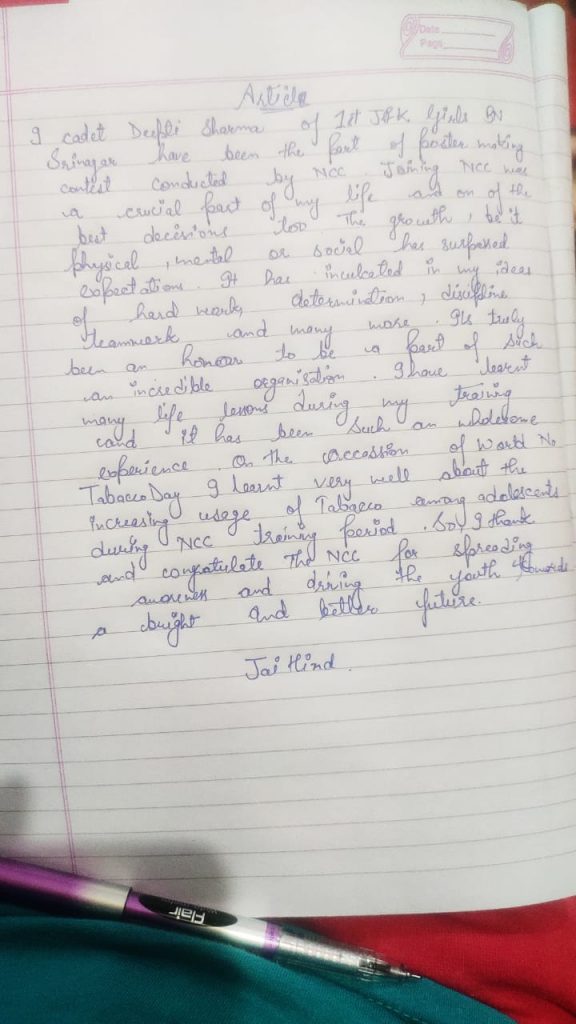 Date
Page
Article
I cadet Deepti Sharma of 1st J&K Girls BN
Srinagar have been the part of poster making
contest conducted by NCC. Joining NCC was
a crucial part of my life and on of the
best decisions too. The growth, be it
physical, mental or social has surpassed
expectations. It has inculcated in my ideas
of hard work, determination, discipline
teamwork and many more. Its truly
been an honour to be a part of such
an incredible organisation. I have learnt
many life lessons during my training
and it has been such an wholesome
experience. On the occassion of World No
Tabacco Day I learnt very well about the
increasing usege of Tabacco among adolescents
during NCC training period. So, I thank
and congratulate the NCC for spreading
awareness and driving the youth towards
a bright and better future.
Jai Hind.
Flair